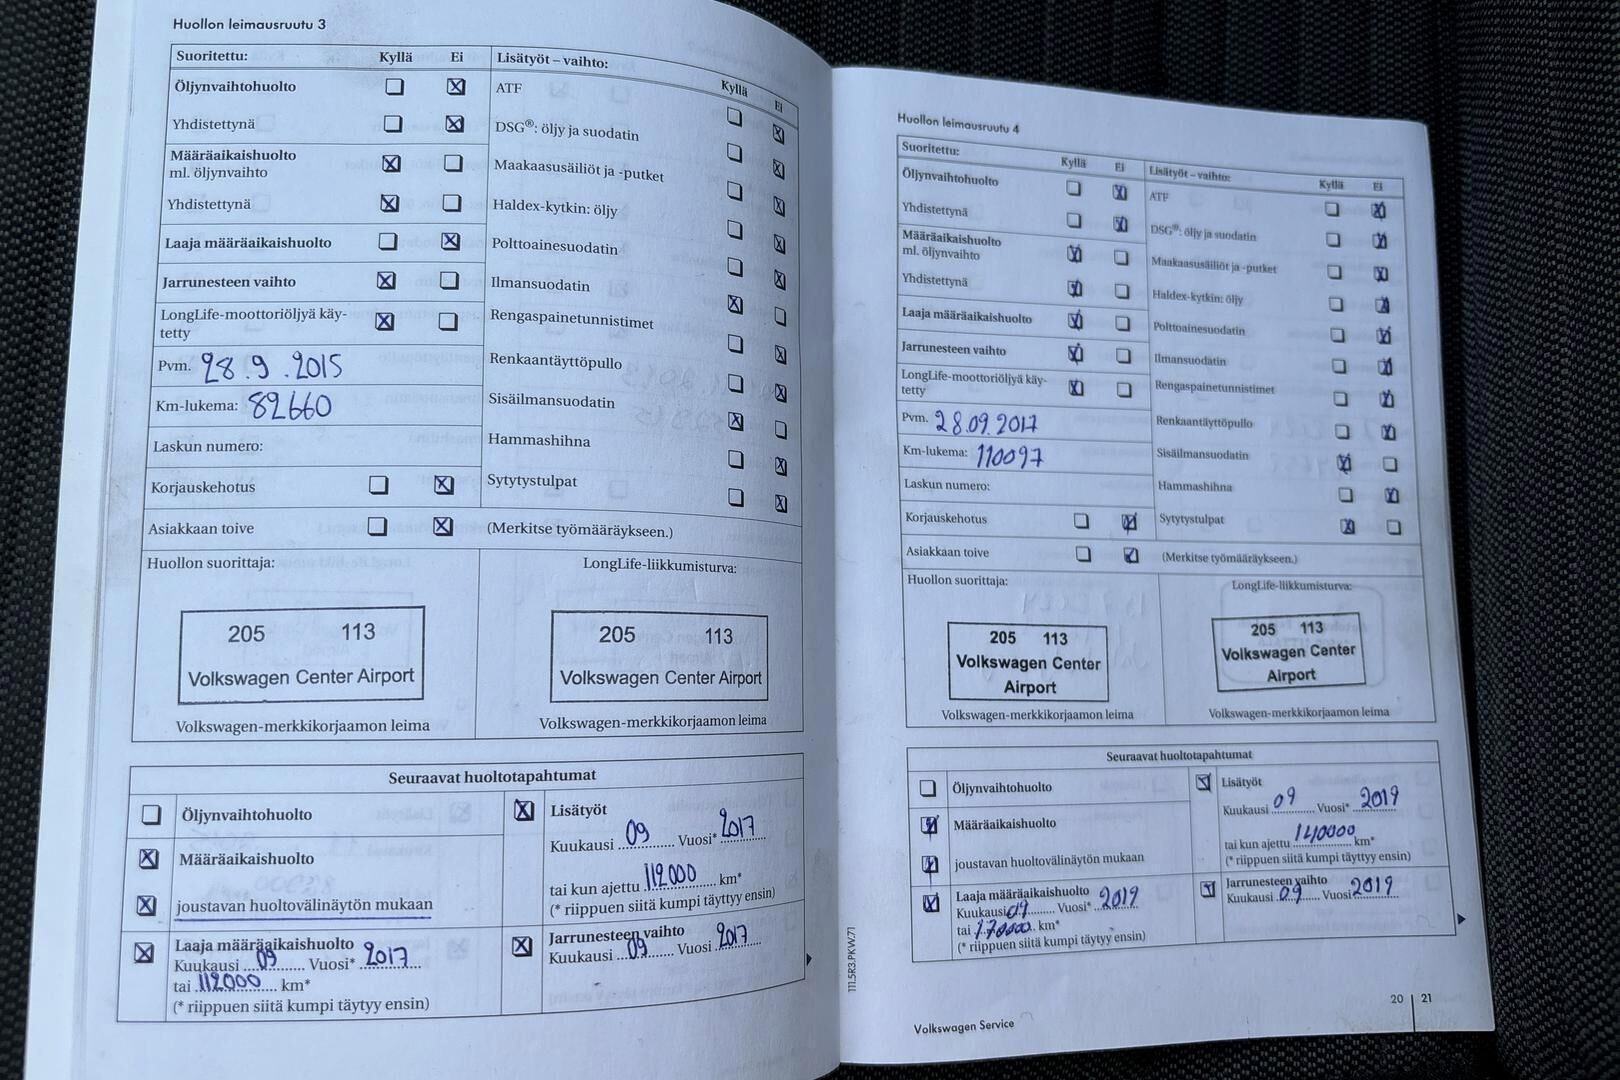 Huollon leimausruutu 3
Suoritettu: Kyllä Ei
Öljynvaihtohuolto
Yhdistettynä
Määräaikaishuolto
ml. öljynvaihto
Yhdistettynä
Laaja määräaikaishuolto
Jarrunesteen vaihto
LongLife-moottoriöljyä käy-
tetty
Pvm. 28.9.2015
Km-lukema: 82660
Laskun numero:
Korjauskehotus
Asiakkaan toive
Lisätyöt – vaihto:
Kyllä Ei
ATF
DSG®: öljy ja suodatin
Maakaasusäiliöt ja -putket
Haldex-kytkin: öljy
Polttoainesuodatin
Ilmansuodatin
Rengaspainetunnistimet
Renkaantäyttöpullo
Sisäilmansuodatin
Hammashihna
Sytytystulpat
(Merkitse työmääräykseen.)
Huollon suorittaja:
205 113
Volkswagen Center Airport
Volkswagen-merkkikorjaamon leima
LongLife-liikkumisturva:
205 113
Volkswagen Center Airport
Volkswagen-merkkikorjaamon leima
Seuraavat huoltotapahtumat
Öljynvaihtohuolto
Määräaikaishuolto
joustavan huoltovälinäytön mukaan
Laaja määräaikaishuolto
Kuukausi 09 Vuosi* 2017
tai 112000 km*
(* riippuen siitä kumpi täytyy ensin)
Lisätyöt
Kuukausi 09 Vuosi* 2017
tai kun ajettu 112000 km*
(* riippuen siitä kumpi täyttyy ensin)
Jarrunesteen vaihto
Kuukausi 09 Vuosi 2017
Huollon leimausruutu 4
Suoritettu: Kyllä Ei
Öljynvaihtohuolto
Yhdistettynä
Määräaikaishuolto
ml. öljynvaihto
Yhdistettynä
Laaja määräaikaishuolto
Jarrunesteen vaihto
LongLife-moottoriöljyä käy-
tetty
Pvm. 28.09.2017
Km-lukema: 110097
Laskun numero:
Korjauskehotus
Asiakkaan toive
Lisätyöt – vaihto:
Kyllä Ei
ATF
DSG®: öljy ja suodatin
Maakaasusäiliöt ja -putket
Haldex-kytkin: öljy
Polttoainesuodatin
Ilmansuodatin
Rengaspainetunnistimet
Renkaantäyttöpullo
Sisäilmansuodatin
Hammashihna
Sytytystulpat
(Merkitse työmääräykseen.)
Huollon suorittaja:
205 113
Volkswagen Center
Airport
Volkswagen-merkkikorjaamon leima
LongLife-liikkumisturva:
205 113
Volkswagen Center
Airport
Volkswagen-merkkikorjaamon leima
Seuraavat huoltotapahtumat
Öljynvaihtohuolto
Määräaikaishuolto
joustavan huoltovälinäytön mukaan
Laaja määräaikaishuolto
Kuukausi 09 Vuosi* 2019
tai 170000 km*
(* riippuen siitä kumpi täytyy ensin)
Lisätyöt
Kuukausi 09 Vuosi* 2019
tai kun ajettu 140000 km*
(* riippuen siitä kumpi täyttyy ensin)
Jarrunesteen vaihto
Kuukausi 09 Vuosi 2019
111.5R3.PKW.71
Volkswagen Service
20 21